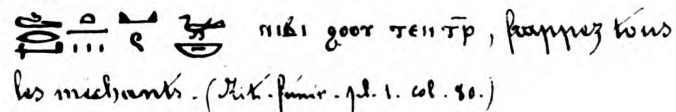 ⲛⲓⲃⲓ ϩⲟⲟⲩ ⲧⲉⲛⲧⲣ̄, frappez tous
les méchants. (Rit. funér. pl. 1. col. 80.)